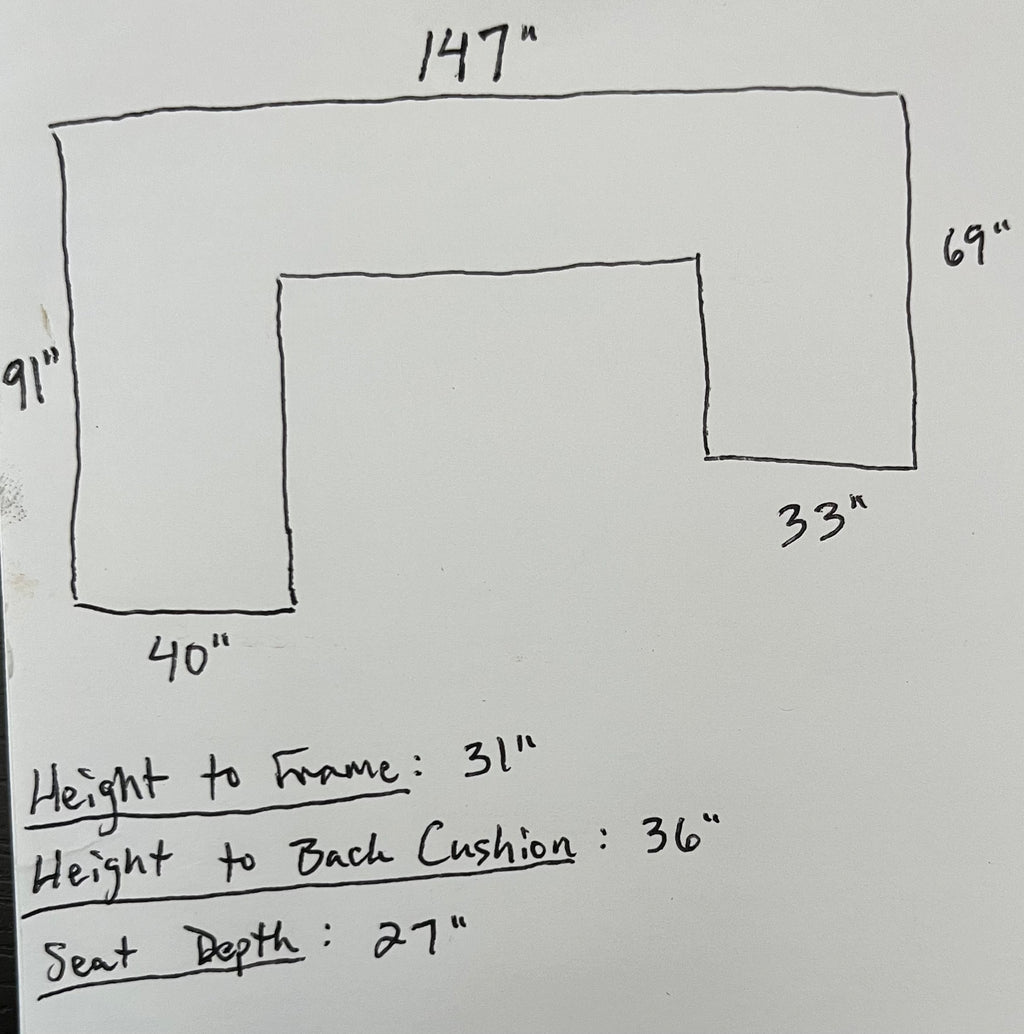 147"
69"
91"
33"
40"
Height to Frame: 31"
Height to Back Cushion: 36"
Seat Depth: 27"